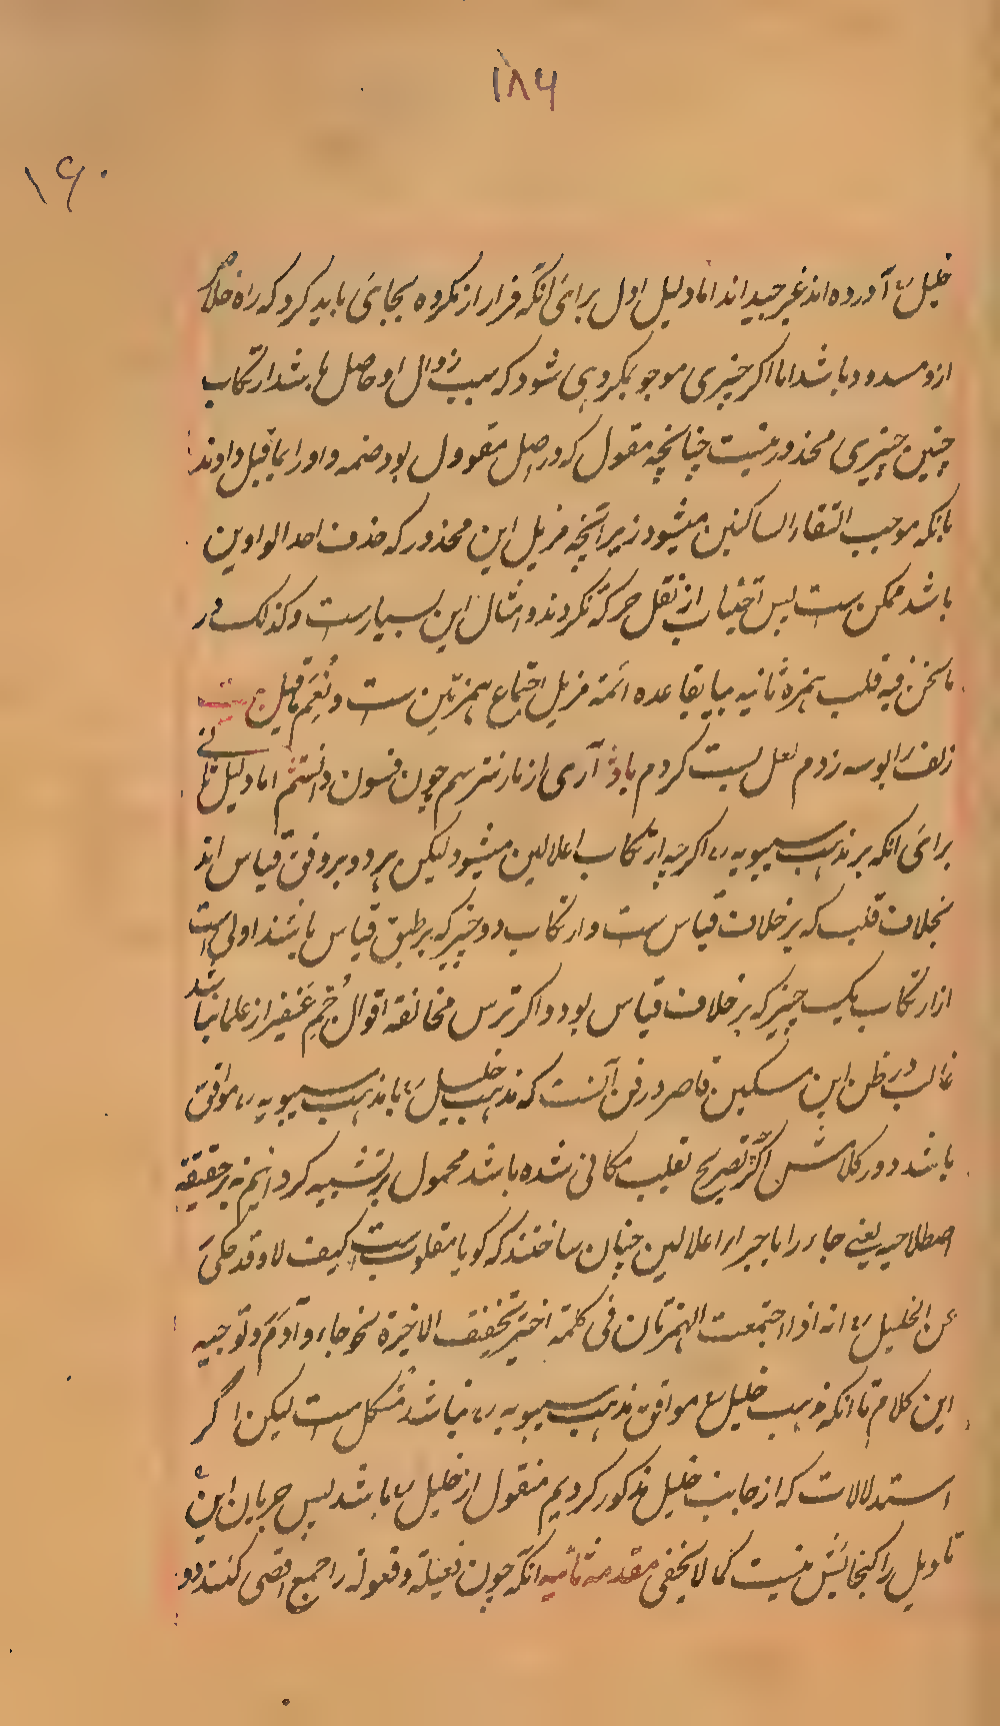 ۱۸۶
۱۶۰
خلیل رح آورده اند غیر جید اند اما دلیل اول برای آنکه فرار از مکروه بجای باید کرد که راه خلاص
ازو مسدود باشد اما اگر چیزی موجب مکروهی شود که سبب زوال او حاصل باشد ارتکاب
چنین چیزی محذور نیست چنانچه مقول که در اصل مقوول بود ضمه واو را بما قبل دادند
بآنکه موجب التقاء الساکنین میشود زیرا آنچه مزیل این محذور که حذف احد الواوین
باشد ممکن ست پس اجتناب از نقل حرکة نکردند و امثال این بسیارست و کذلک در
ما نحن فیه قلب همزه ثانیه بیا بقاعده ائمة مزیل اجتماع همزتین ست و نعم ما قیل بیت
زلف را بوسه زدم لعل لبت کردم یاد آری از مار نترسم چون فسون دانستم اما دلیل ثانی
برای آنکه بر مذهب سیبویه رح اگرچه ارتکاب اعلالین میشود لیکن هر دو بر وفق قیاس اند
بخلاف قلب که بر خلاف قیاس ست و ارتکاب دو چیز که بر طبق قیاس باشند اولی است
از ارتکاب یک چیز که بر خلاف قیاس بود و اگر ترس مخالفة اقوال جم غفیر از علما نباشد
غالب در ظن این مسکین قاصر در فن آنست که مذهب خلیل رح با مذهب سیبویه رح موافق
باشد و در کلامش اگر تصریح بقلب مکانی شده باشد محمول بر تشبیه کردانیم نه بر حقیقة
اصطلاحیه یعنی جاء را با جراء اعلالین چنان ساختند که کویا مقلوب ست کیف لا و قد حکی
عن الخلیل رح انه اذا اجتمعت الهمزتان فی کلمة اختیر تخفیف الاخیرة نحو جاء و آدم و توجیه
این کلام تا آنکه مذهب خلیل رح موافق مذهب سیبویه رح نباشد مشکل ست لیکن اگر
استدلالات که از جانب خلیل مذکور کردیم منقول از خلیل رح باشد پس جریان این
تاویل را کنجایش نیست کما لا یخفی مقدمه ثانیه آنکه چون فعیلة و فعولة را جمع اقصی کنند دو